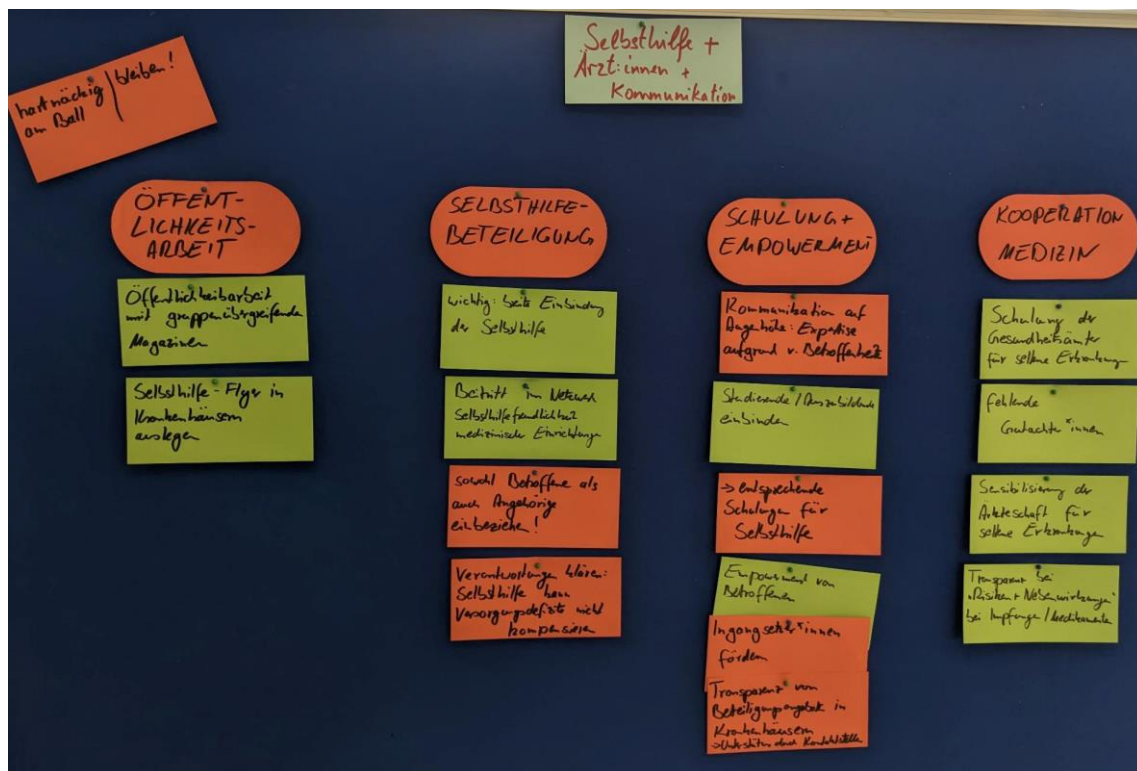 Selbsthilfe +
Ärzt:innen +
Kommunikation
hartnäckig / bleiben!
am Ball
ÖFFENT-
LICHKEITS-
ARBEIT
Öffentlichkeitsarbeit
mit gruppenübergreifenden
Magazinen
Selbsthilfe-Flyer in
Krankenhäusern
auslegen
SELBSTHILFE-
BETEILIGUNG
wichtig: breite Einbindung
der Selbsthilfe
Beitritt im Netzwerk
Selbsthilfefreundlichkeit
medizinische Einrichtungen
sowohl Betroffene als
auch Angehörige
einbeziehen!
Verantwortungen klären:
Selbsthilfe kann
Versorgungsdefizite nicht
kompensieren
SCHULUNG +
EMPOWERMENT
Kommunikation auf
Augenhöhe: Expertise
aufgrund v. Betroffenheit
Studierende / Auszubildende
einbinden
→ entsprechende
Schulungen für
Selbsthilfe
Empowerment von
Betroffenen
Ingangsetzer*innen
fördern
Transparenz von
Beteiligungsangeboten in
Krankenhäusern
→ durch Kontaktstellen
KOOPERATION
MEDIZIN
Schulung der
Gesundheitsämter
für seltene Erkrankungen
fehlende
Gutachter*innen
Sensibilisierung der
Ärzteschaft für
seltene Erkrankungen
Transparenz bei
"Risiken + Nebenwirkungen"
bei Impfungen / Medikamenten